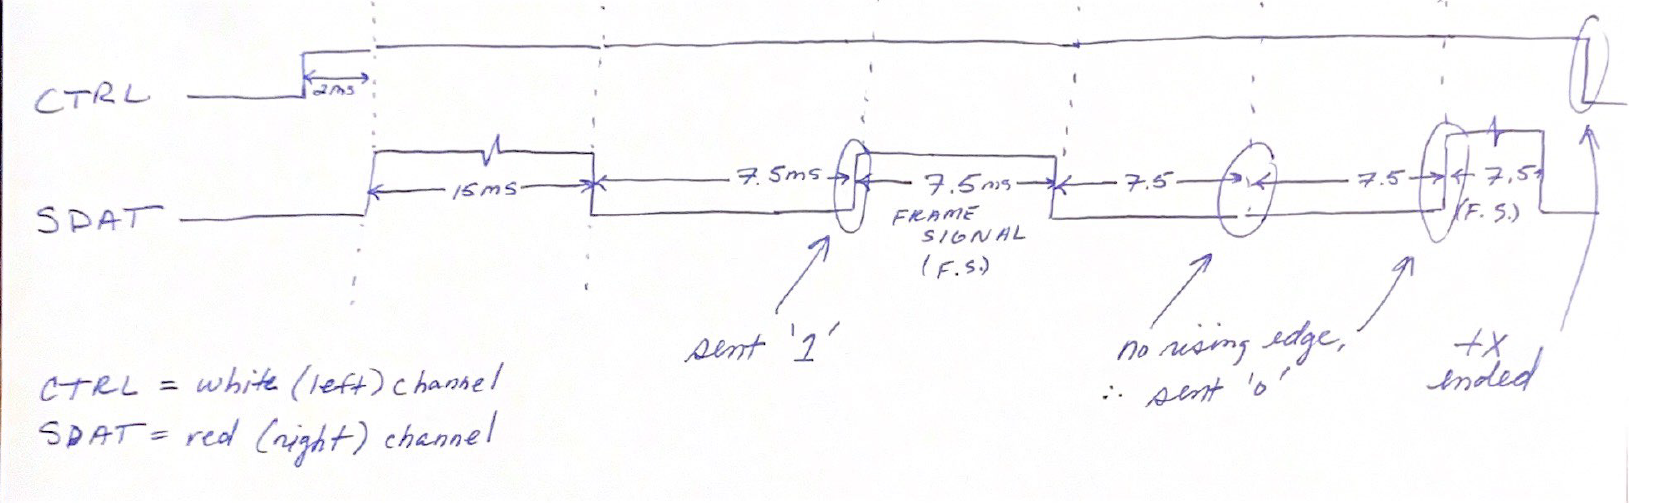 CTRL
2ms
SDAT
15ms
7.5ms
7.5ms
7.5
7.5
7.5
FRAME
SIGNAL
(F.S.)
(F.S.)
sent '1'
no rising edge,
∴ sent '0'
tx
ended
CTRL = white (left) channel
SDAT = red (right) channel